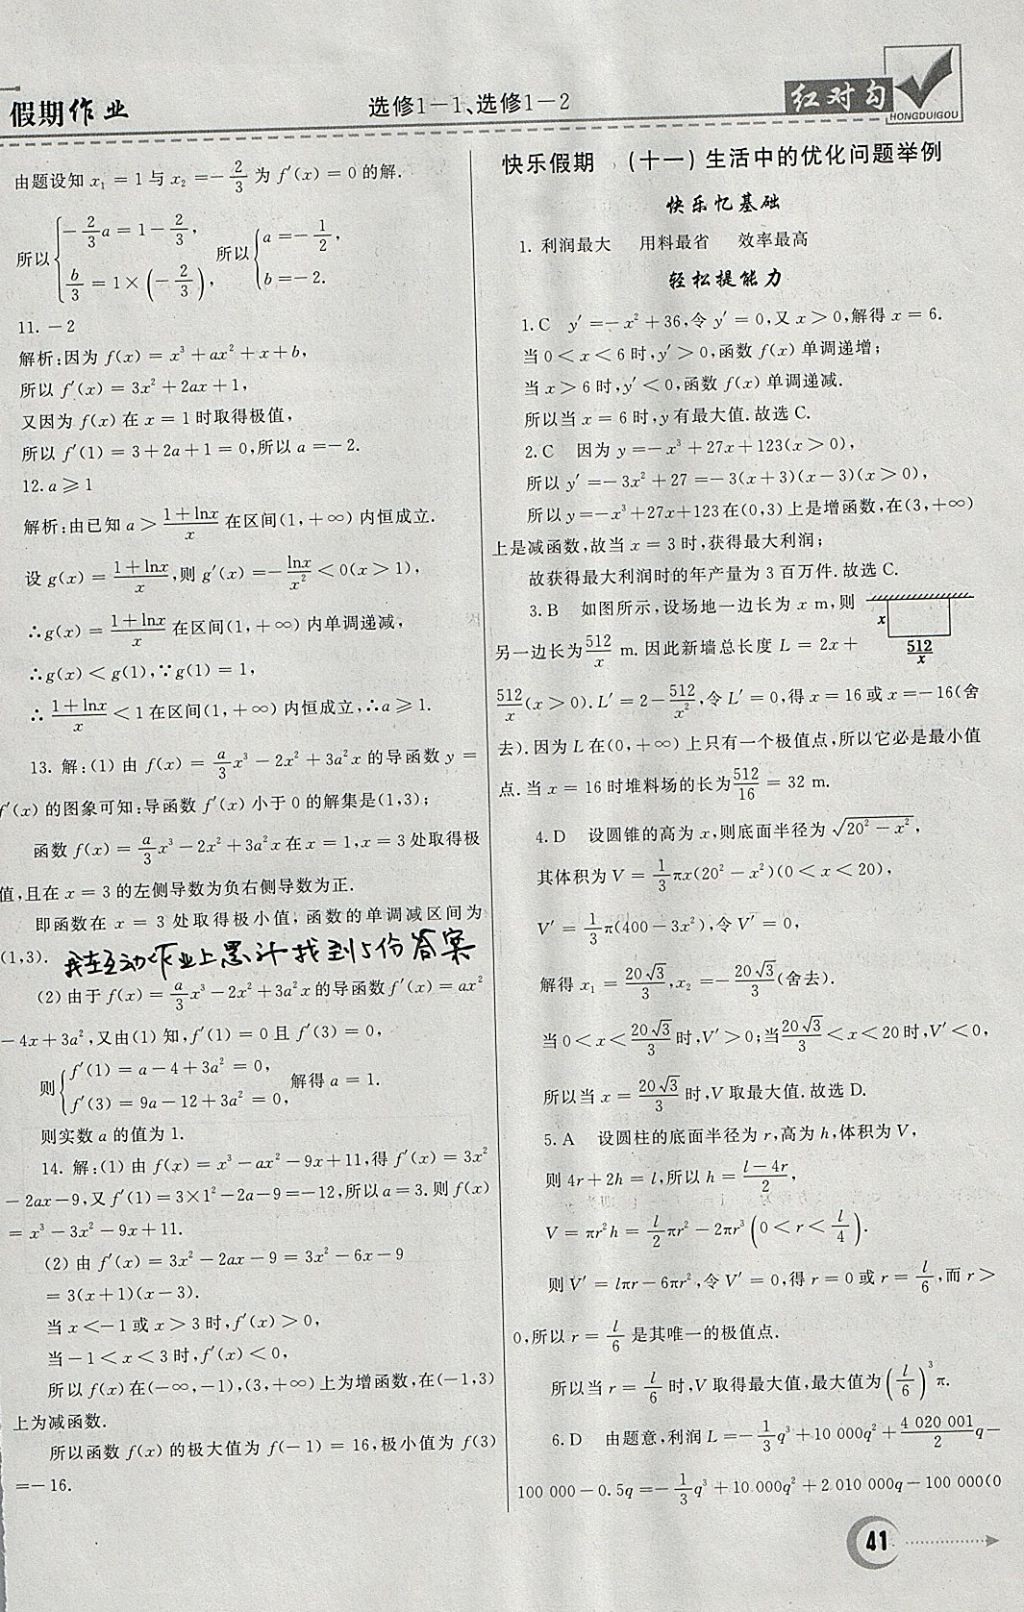 假期作业
选修1－1、选修1－2
红对勾
HONGDUIGOU
由题设知 x₁ = 1 与 x₂ = －2/3 为 f′(x) = 0 的解.
所以{－2/3a = 1－2/3, b/3 = 1×(－2/3), 所以{a = －1/2, b = －2.
11. －2
解析:因为 f(x) = x³ + ax² + x + b,
所以 f′(x) = 3x² + 2ax + 1,
又因为 f(x) 在 x = 1 时取得极值,
所以 f′(1) = 3 + 2a + 1 = 0,所以 a = －2.
12. a ⩾ 1
解析:由已知 a > (1+lnx)/x 在区间(1,+∞) 内恒成立.
设 g(x) = (1+lnx)/x,则 g′(x) = －lnx/x² < 0(x > 1),
∴g(x) = (1+lnx)/x 在区间(1,+∞) 内单调递减,
∴g(x) < g(1),∵g(1) = 1,
∴(1+lnx)/x < 1 在区间(1,+∞) 内恒成立,∴a ⩾ 1.
13. 解:(1) 由 f(x) = a/3x³ － 2x² + 3a²x 的导函数 y =
f′(x) 的图象可知:导函数 f′(x) 小于 0 的解集是(1,3);
函数 f(x) = a/3x³ － 2x² + 3a²x 在 x = 1,x = 3 处取得极
值,且在 x = 3 的左侧导数为负右侧导数为正.
即函数在 x = 3 处取得极小值,函数的单调减区间为
(1,3). 我在互动作业上累计找到5份答案
(2) 由于 f(x) = a/3x³ － 2x² + 3a²x 的导函数 f′(x) = ax²
－ 4x + 3a²,又由(1) 知,f′(1) = 0 且 f′(3) = 0,
则{f′(1) = a － 4 + 3a² = 0, f′(3) = 9a － 12 + 3a² = 0, 解得 a = 1.
则实数 a 的值为 1.
14. 解:(1) 由 f(x) = x³ － ax² － 9x + 11,得 f′(x) = 3x²
－ 2ax － 9,又 f′(1) = 3×1² － 2a － 9 = －12,所以 a = 3. 则 f(x)
= x³ － 3x² － 9x + 11.
(2) 由 f′(x) = 3x² － 2ax － 9 = 3x² － 6x － 9
= 3(x + 1)(x － 3).
当 x < －1 或 x > 3 时,f′(x) > 0,
当 －1 < x < 3 时,f′(x) < 0,
所以 f(x) 在(－∞,－1),(3,+∞) 上为增函数,在(－1,3)
上为减函数.
所以函数 f(x) 的极大值为 f(－1) = 16,极小值为 f(3)
= － 16.
快乐假期 (十一) 生活中的优化问题举例
快乐忆基础
1. 利润最大 用料最省 效率最高
轻松提能力
1. C y′ = － x² + 36,令 y′ = 0,又 x > 0,解得 x = 6.
当 0 < x < 6 时,y′ > 0,函数 f(x) 单调递增;
当 x > 6 时,y′ < 0,函数 f(x) 单调递减.
所以当 x = 6 时,y 有最大值. 故选 C.
2. C 因为 y = － x³ + 27x + 123(x > 0),
所以 y′ = － 3x² + 27 = － 3(x + 3)(x － 3)(x > 0),
所以 y = － x³ + 27x + 123 在(0,3) 上是增函数,在(3,+∞)
上是减函数,故当 x = 3 时,获得最大利润;
故获得最大利润时的年产量为 3 百万件. 故选 C.
3. B 如图所示,设场地一边长为 x m,则
x
512/x
另一边长为512/x m. 因此新墙总长度 L = 2x +
512/x(x > 0). L′ = 2 － 512/x²,令 L′ = 0,得 x = 16 或 x = －16(舍
去). 因为 L 在(0,+∞) 上只有一个极值点,所以它必是最小值
点. 当 x = 16 时堆料场的长为512/16 = 32 m.
4. D 设圆锥的高为 x,则底面半径为 √(20² － x²),
其体积为 V = 1/3πx(20² － x²)(0 < x < 20),
V′ = 1/3π(400 － 3x²),令 V′ = 0,
解得 x₁ = 20√3/3,x₂ = － 20√3/3(舍去).
当 0 < x < 20√3/3 时,V′ > 0;当20√3/3 < x < 20 时,V′ < 0,
所以当 x = 20√3/3 时,V 取最大值. 故选 D.
5. A 设圆柱的底面半径为 r,高为 h,体积为 V,
则 4r + 2h = l,所以 h = (l－4r)/2,
V = πr²h = l/2πr² － 2πr³(0 < r < l/4).
则 V′ = lπr － 6πr²,令 V′ = 0,得 r = 0 或 r = l/6,而 r >
0,所以 r = l/6 是其唯一的极值点.
所以当 r = l/6 时,V 取得最大值,最大值为(l/6)³π.
6. D 由题意,利润 L = － 1/3q³ + 10 000q² + 4 020 001/2q －
100 000 － 0.5q = － 1/3q³ + 10 000q² + 2 010 000q － 100 000(0
41